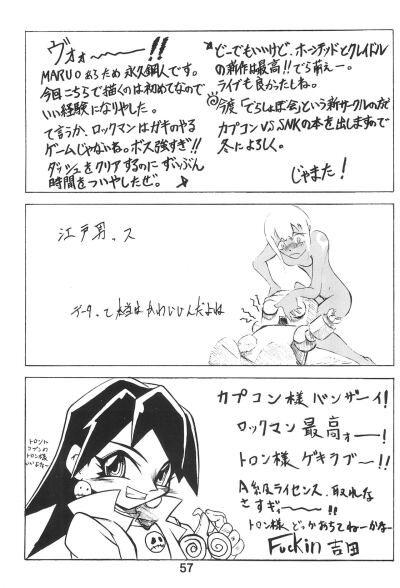 ヴォォ〜〜〜!!
MARUOあらため永久鋼人です。
今回こちらで描くのは初めてなので
いい経験になりやした。
て言うか、ロックマンはガキのやる
ゲームじゃないね。ボス強すぎ!!
ダッシュをクリアするのにずいぶん
時間をついやしたぜ。
どーでもいいけど、ホーンテッドとクレイドル
の新作は最高!!でら萌えー。
ライブも良かったしね。
今度「でらしょぼ会」という新サークルの方で
カプコンVS.SNKの本を出しますので
冬によろしく。
じゃまた!
江戸男.ス
データ。て本当はかわいいんだよね
カプコン様バンザーイ!
ロックマン最高ォー!
トロン様ゲキラブー!!
A級ライセンス、取れな
さすぎ〜〜〜!!
トロン様どっかおちてねーかなー
Fuckin 吉田
トロンと
コブンの
トロン様
57